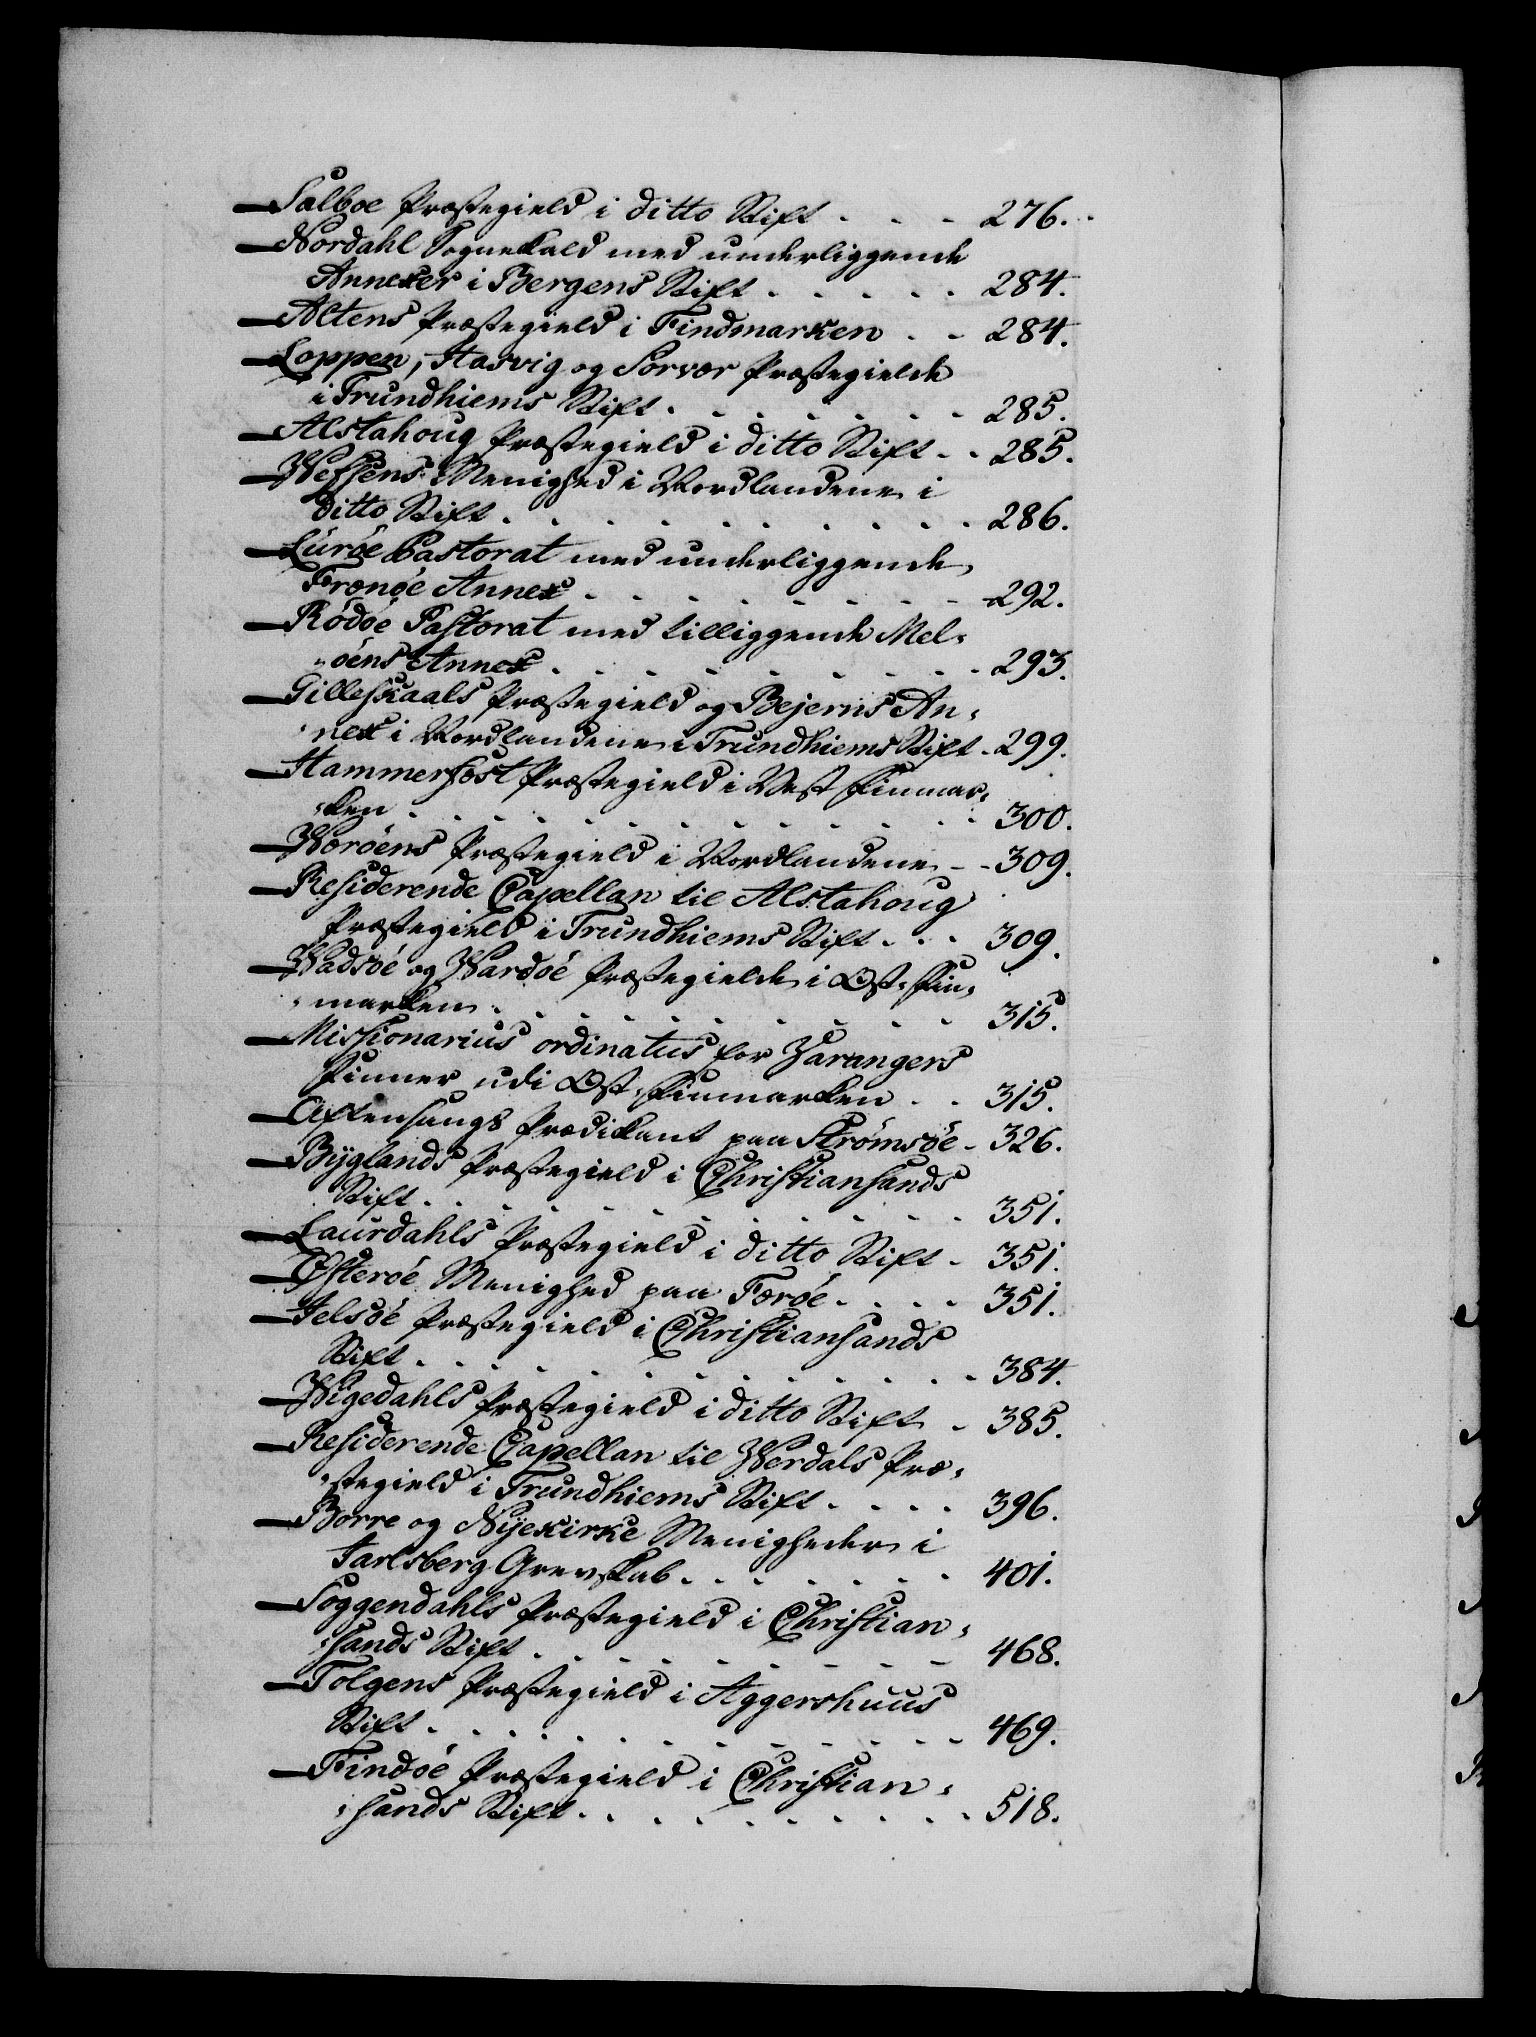 — Salboe Præstegield i ditto Stift . . . 276.
— Nordahl Sognekald med underliggende
Annexer i Bergens Stift . . . . . 284.
— Altens Præstegield i Findmarken . . 284.
— Loppen, Hasvig og Sorvær Præstegielde
i Trundhiems Stift . . . . . . . 285.
— Alstahoug Præstegield i ditto Stift . . 285.
— Wefsens Menighed i Nordlandene i
ditto Stift . . . . . . . . . . 286.
— Luröe Pastorat med underliggende
Trænöe Annex . . . . . . . . 292.
— Rödöe Pastorat med tilliggende Mel-
öens Annex . . . . . . . . . 293.
— Gilleskaals Præstegield og Bejerns An-
nex i Nordlandene i Trundhiems Stift . 299.
— Hammerfæst Præstegield i Vest Finmar-
ken . . . . . . . . . . . . 300.
— Weröens Præstegield i Nordlandene . . 309.
— Residerende Capellan til Alstahoug
Præstegield i Trundhiems Stift . . . 309.
— Wadsöe og Wardöe Præstegielde i Ost-Fin-
marken . . . . . . . . . . 315.
— Missionarius ordinatus for Warangers
Finner udi Ost-Finmarken . . 315.
— Aftensangs Prædikant paa Strömsöe . 326.
— Byglands Præstegield i Christiansands
Stift . . . . . . . . . . . 351.
— Laurdahls Præstegield i ditto Stift . 351.
— Österöe Menighed paa Færöe . . . . 351.
— Jelsöe Præstegield i Christiansands
Stift . . . . . . . . . . . 384.
— Wigedahls Præstegield i ditto Stift . 385.
— Residerende Capellan til Werdals Præ-
stegield i Trundhiems Stift . . . . 396.
— Borre og Nyekirke Menigheder i
Jarlsberg Grevskab . . . . . . . 401.
— Soggendahls Præstegield i Christian-
sands Stift . . . . . . . . . 468.
— Tolgens Præstegield i Aggershuus
Stift . . . . . . . . . . . 469.
— Findöe Præstegield i Christian-
sands Stift . . . . . . . . . 518.